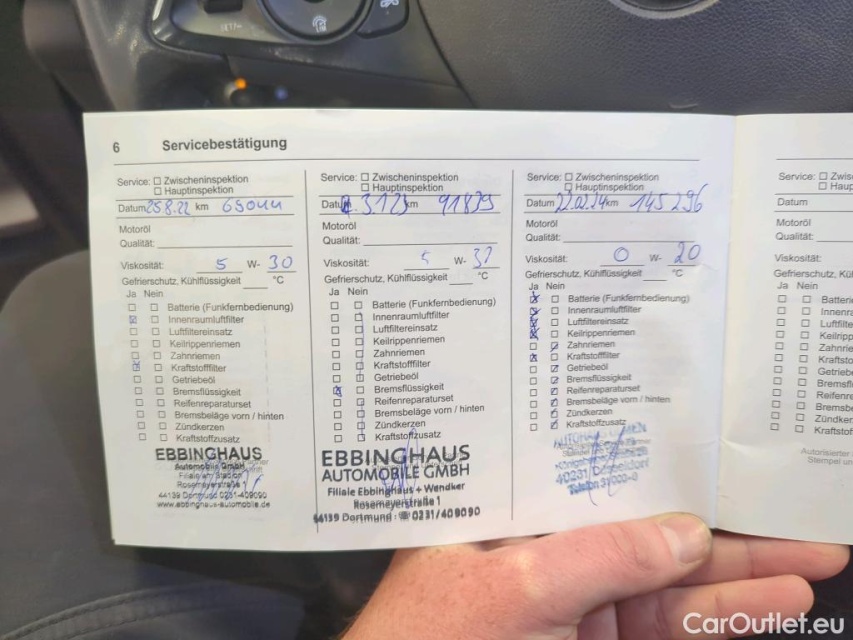 SET/-
6 Servicebestätigung
Service: Zwischeninspektion
Hauptinspektion
Datum 25.8.22 km 65044
Motoröl
Qualität:
Viskosität: 5 W- 30
Gefrierschutz, Kühlflüssigkeit °C
Ja Nein
Batterie (Funkfernbedienung)
Innenraumluftfilter
Luftfiltereinsatz
Keilrippenriemen
Zahnriemen
Kraftstofffilter
Getriebeöl
Bremsflüssigkeit
Reifenreparaturset
Bremsbeläge vorn / hinten
Zündkerzen
Kraftstoffzusatz
EBBINGHAUS
Automobile GmbH
Filiale am Stadion
Rosemeyerstraße 1
44139 Dortmund 0231-409090
www.ebbinghaus-automobile.de
Service: Zwischeninspektion
Hauptinspektion
Datum km 91839
Motoröl
Qualität:
Viskosität: 5 W-
Gefrierschutz, Kühlflüssigkeit °C
Ja Nein
Batterie (Funkfernbedienung)
Innenraumluftfilter
Luftfiltereinsatz
Keilrippenriemen
Zahnriemen
Kraftstofffilter
Getriebeöl
Bremsflüssigkeit
Reifenreparaturset
Bremsbeläge vorn / hinten
Zündkerzen
Kraftstoffzusatz
EBBINGHAUS
AUTOMOBILE GMBH
Filiale Ebbinghaus + Wendker
Rosemeyerstraße 1
44139 Dortmund · ☎ 0231/409090
Service: Zwischeninspektion
Hauptinspektion
Datum 22.02.24 km 145296
Motoröl
Qualität:
Viskosität: 0 W- 20
Gefrierschutz, Kühlflüssigkeit °C
Ja Nein
Batterie (Funkfernbedienung)
Innenraumluftfilter
Luftfiltereinsatz
Keilrippenriemen
Zahnriemen
Kraftstofffilter
Getriebeöl
Bremsflüssigkeit
Reifenreparaturset
Bremsbeläge vorn / hinten
Zündkerzen
Kraftstoffzusatz
40231 Düsseldorf
Telefon
Service: Zwisc
Haup
Datum
Motoröl
Qualität:
Viskosität:
Gefrierschutz, Kühlflü
Ja Nein
Batteri
Innenr
Luftfilte
Keilrip
Zahnrie
Kraftsto
Getriebe
Bremsfl
Reifenre
Bremsbe
Zündker
Kraftstof
Autorisierter
Stempel un
CarOutlet.eu